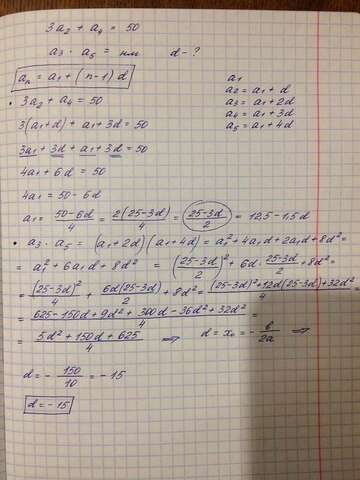 3a₂ + a₄ = 50
a₃ · a₅ = нм d - ?
aₙ = a₁ + (n-1)d
a₁
a₂ = a₁ + d
a₃ = a₁ + 2d
a₄ = a₁ + 3d
a₅ = a₁ + 4d
• 3a₂ + a₄ = 50
3(a₁+d) + a₁ + 3d = 50
3a₁ + 3d + a₁ + 3d = 50
4a₁ + 6d = 50
4a₁ = 50 - 6d
a₁ = (50-6d)/4 = 2(25-3d)/4 = (25-3d)/2 = 12,5 - 1,5d
• a₃ · a₅ = (a₁+2d)(a₁+4d) = a₁² + 4a₁d + 2a₁d + 8d² =
= a₁² + 6a₁d + 8d² = ((25-3d)/2)² + 6d · (25-3d)/2 + 8d² =
= (25-3d)²/4 + 6d(25-3d)/2 + 8d² = ((25-3d)² + 12d(25-3d) + 32d²)/4 =
= (625 - 150d + 9d² + 300d - 36d² + 32d²)/4 =
= (5d² + 150d + 625)/4 ⇒ d = x₀ = - b/2a ⇒
d = - 150/10 = -15
d = -15